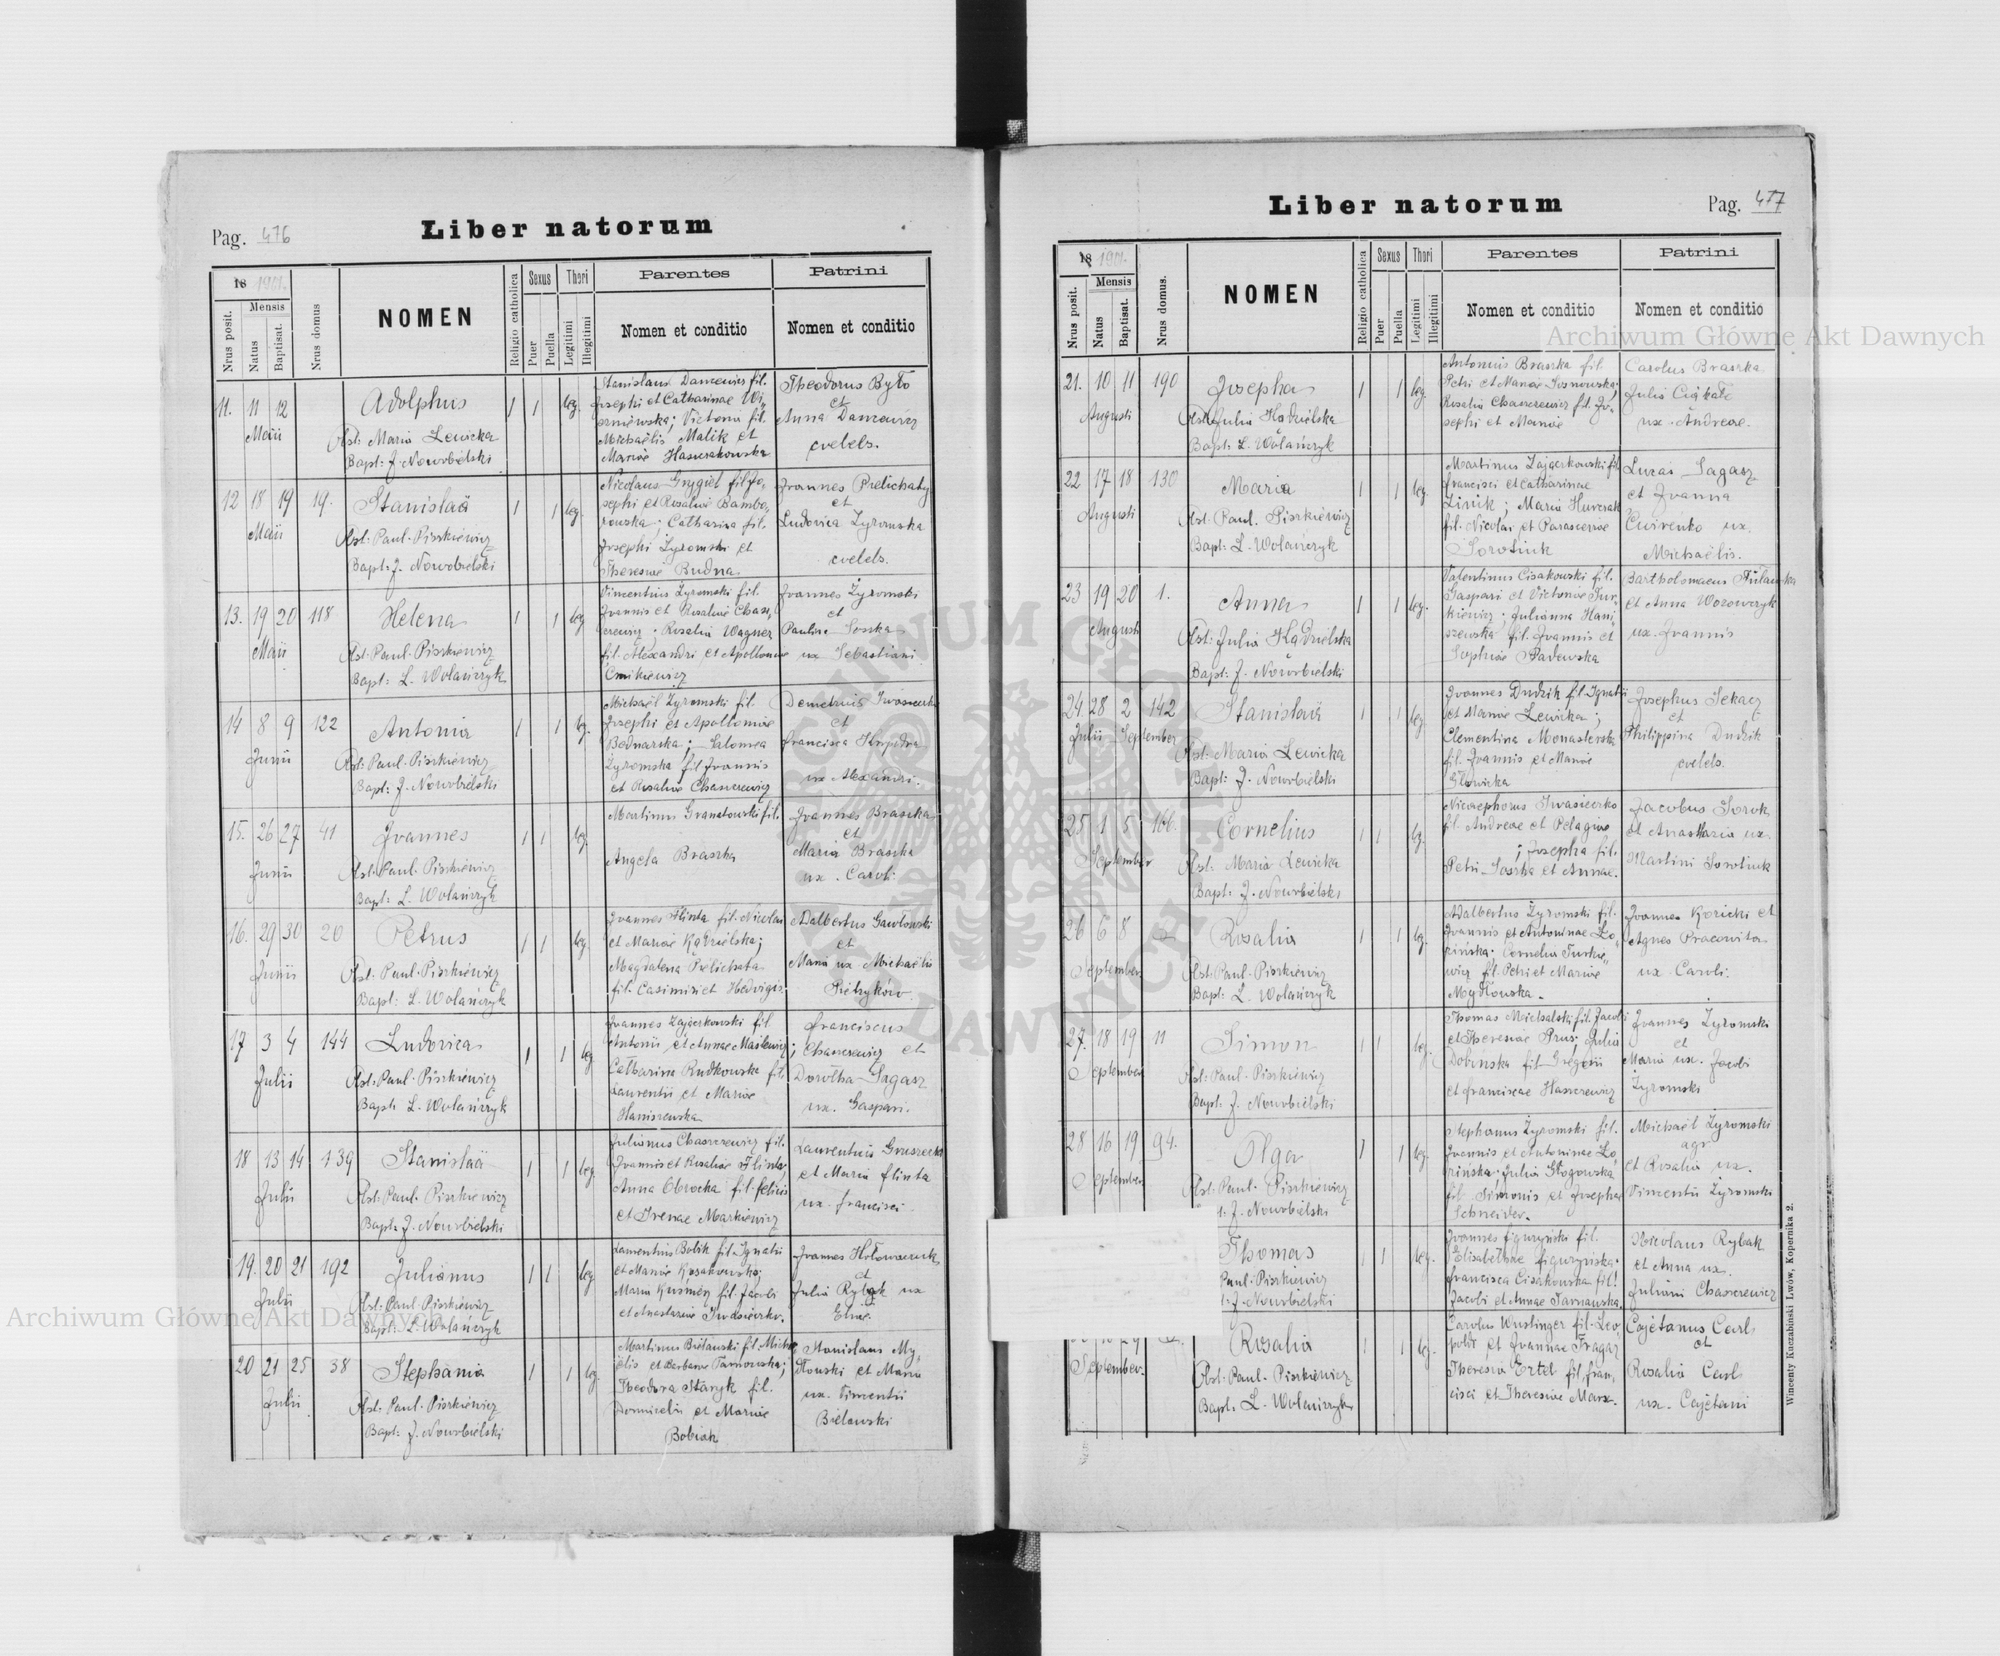 Pag. 476
Liber natorum
18 1901.
Nrus posit.
Mensis
Natus
Baptisat.
Nrus domus
NOMEN
Religio catholica
Sexus
Puer
Puella
Thori
Legitimi
Illegitimi
Parentes
Nomen et conditio
Patrini
Nomen et conditio
11. 11 12
Maii
Adolphus
Obst: Maria Lewicka
Bapt: J. Nowobielski
1 1 leg.
Stanislaus fil.
Josephi et Catharinae Wi-
szniewska; Victoria fil.
Michaëlis Malik et
Mariae
Theodorus Byto
et
Anna
coelebs.
12 18 19 19.
Maii
Stanislaä
Obst: Paul. Piszkiewicz
Bapt: J. Nowobielski
1 1 leg.
Nicolaus Grygiel fil. Jo-
sephi et Rosaliae Bambo-
rowska; Catharina fil.
Josephi Zyromski et
Theresiae Budna
Joannes Prelichaty
et
Ludovica Zyromska
coelebs.
13. 19 20 118
Maii
Helena
Obst: Paul. Piszkiewicz
Bapt: L. Wolańczyk
1 1 leg
Vincentius Zyromski fil.
Joannis et Rosaliae Chasz-
czewicz; Rosalia Wagner
fil. Alexandri et Apolloniae
Joannes Zyromski
et
Paulina Soszka
ux Sebastiani
14 8 9 122
Junii
Antonia
Obst: Paul. Piszkiewicz
Bapt: J. Nowobielski
1 1 leg.
Michaël Zyromski fil.
Josephi et Apolloniae
Bednarska; Salomea
Zyromska fil. Joannis
et Rosaliae Chaszczewicz
Demetrius Iwasieczko
et
Francisca
ux Alexandri.
15. 26 27 41
Junii
Joannes
Obst: Paul. Piszkiewicz
Bapt: L. Wolańczyk
1 1 leg.
Martinus Granatowski fil.
Angela Braszka
Joannes Braszka
et
Maria Braszka
ux. Caroli
16. 29 30 20
Junii
Petrus
Obst: Paul. Piszkiewicz
Bapt: L. Wolańczyk
1 1 leg
Joannes Flinta fil. Nicolai
et Mariae Kądzielska;
Magdalena Prelichata
fil. Casimiri et Hedvigis
Adalbertus Gawłowski
et
Maria ux Michaëlis
17 3 4 144
Julii
Ludovica
Obst: Paul. Piszkiewicz
Bapt: L. Wolańczyk
1 1 leg
Joannes Zajączkowski fil.
Antonii et Annae
Catharina Rudkowska fil.
Laurentii et Mariae
Haniszewska
Franciscus
Chaszczewicz et
Dorotha Sagasz
ux. Gaspari.
18 13 14 139
Julii
Stanislaä
Obst: Paul. Piszkiewicz
Bapt: J. Nowobielski
1 1 leg.
Julianus Chaszczewicz fil.
Joannis et Rosaliae Flinta;
Anna Obrocka fil. Felicis
et Irenae Markiewicz
Laurentius Gruszecki
et Maria Flinta
ux. Francisci
19. 20 21 192
Julii
Julianus
Obst: Paul. Piszkiewicz
Bapt: L. Wolańczyk
1 1 leg
Laurentius Bobik fil. Ignatii
et Mariae Kosakowska;
Maria fil. Jacobi
et Anastasiae Iwasieczko.
Joannes Hołowaczuk
et
Julia Rybak ux
Eliae.
20 21 25 38
Julii
Stephania
Obst: Paul. Piszkiewicz
Bapt: J. Nowobielski
1 1 leg.
Martinus Bielawski fil. Micha-
ëlis et Barbarae Tarnowska;
Theodora Staryk fil.
et Mariae
Bobiak
Stanislaus My-
dłowski et Maria
ux. Vincentii
Bielawski
Liber natorum
Pag. 477
18 1901.
Nrus posit.
Mensis
Natus
Baptisat.
Nrus domus.
NOMEN
Religio catholica
Sexus
Puer
Puella
Thori
Legitimi
Illegitimi
Parentes
Nomen et conditio
Patrini
Nomen et conditio
21. 10 11 190
Augusti
Josepha
Obst: Julia Kądzielska
Bapt: L. Wolańczyk
1 1 leg.
Antonius Braszka fil.
Petri et Mariae Sosnowska;
Rosalia Chaszczewicz fil. Jo-
sephi et Mariae
Carolus Braszka
Julia
ux. Andreae.
22 17 18 130
Augusti
Maria
Obst: Paul. Piszkiewicz
Bapt: L. Wolańczyk
1 1 leg.
Martinus Zajączkowski fil
Francisci et Catharinae
Linik; Maria
fil. Nicolai et Parasceviae
Sorotiuk
Lucas Sagasz
et Joanna
ux.
Michaëlis.
23 19 20 1.
Augusti
Anna
Obst: Julia Kądzielska
Bapt: J. Nowobielski
1 1 leg.
Valentinus Cisakowski fil.
Gaspari et Victoriae Tur-
kiewicz; Julianna Hani-
szewska fil. Joannis et
Sophiae Sadowska
Bartholomaeus
et Anna
ux. Joannis
24 28 2 142
Julii September
Stanislaä
Obst: Maria Lewicka
Bapt: J. Nowobielski
1 1 leg
Joannes Dudzik fil. Ignatii
et Mariae Lewicka;
Clementina Monasterska
fil. Joannis et Mariae
Josephus Sekacz
et
Philippina Dudzik
coelebs.
25 1 5 166.
September
Cornelius
Obst: Maria Lewicka
Bapt: J. Nowobielski
1 1 leg.
Nicephorus Iwasieczko
fil. Andreae et Pelagiae
; Josepha fil.
Petri Soszka et Annae.
Jacobus Sorok
et Anastasia ux.
Martini Sorotiuk
26 6 8
September
Rosalia
Obst: Paul. Piszkiewicz
Bapt: L. Wolańczyk
1 1 leg
Adalbertus Zyromski fil.
Joannis et Antoninae Ło-
zińska; Cornelia Turkie-
wicz fil. Petri et Mariae
Mydłowska.
Joannes Kozicki et
Agnes Pracowita
ux. Caroli.
27. 18 19 11
September
Simon
Obst: Paul. Piszkiewicz
Bapt: J. Nowobielski
1 1 leg.
Thomas Michalski fil. Jacobi
et Theresiae Prus; Julia
Dobinska fil. Gregorii
et Franciscae Haszczewicz
Joannes Zyromski
et
Maria ux. Jacobi
Zyromski
28 16 19 94.
September
Olga
Obst: Paul. Piszkiewicz
: J. Nowobielski
1 1 leg.
Stephanus Zyromski fil.
Joannis et Antoninae Ło-
zińska; Julia Głogowska
fil. Simonis et Josephae
Schneider.
Michaël Zyromski
agr.
et Rosalia ux.
Vincentii Zyromski
Thomas
Paul. Piszkiewicz
: J. Nowobielski
1 1 leg.
Joannes Figurzyński fil.
Elisabethae Figurzyńska;
Francisca Cisakowska fil.
Jacobi et Annae Tarnawska.
Nicolaus Rybak
et Anna ux.
Juliani Chaszczewicz
September.
Rosalia
Obst: Paul. Piszkiewicz
Bapt: L. Wolańczyk
1 1 leg.
Carolus Wustinger fil. Leo-
poldi et Joannae Tragar
Theresia Ertel fil. Fran-
cisci et Theresiae Marx.
Cajetanus Carl
et
Rosalia Carl
ux. Cajetani
Wincenty Kuczabiński Lwów, Kopernika 2.
Archiwum Główne Akt Dawnych
Archiwum Główne Akt Dawnych
ARCHIWUM GŁÓWNE AKT DAWNYCH